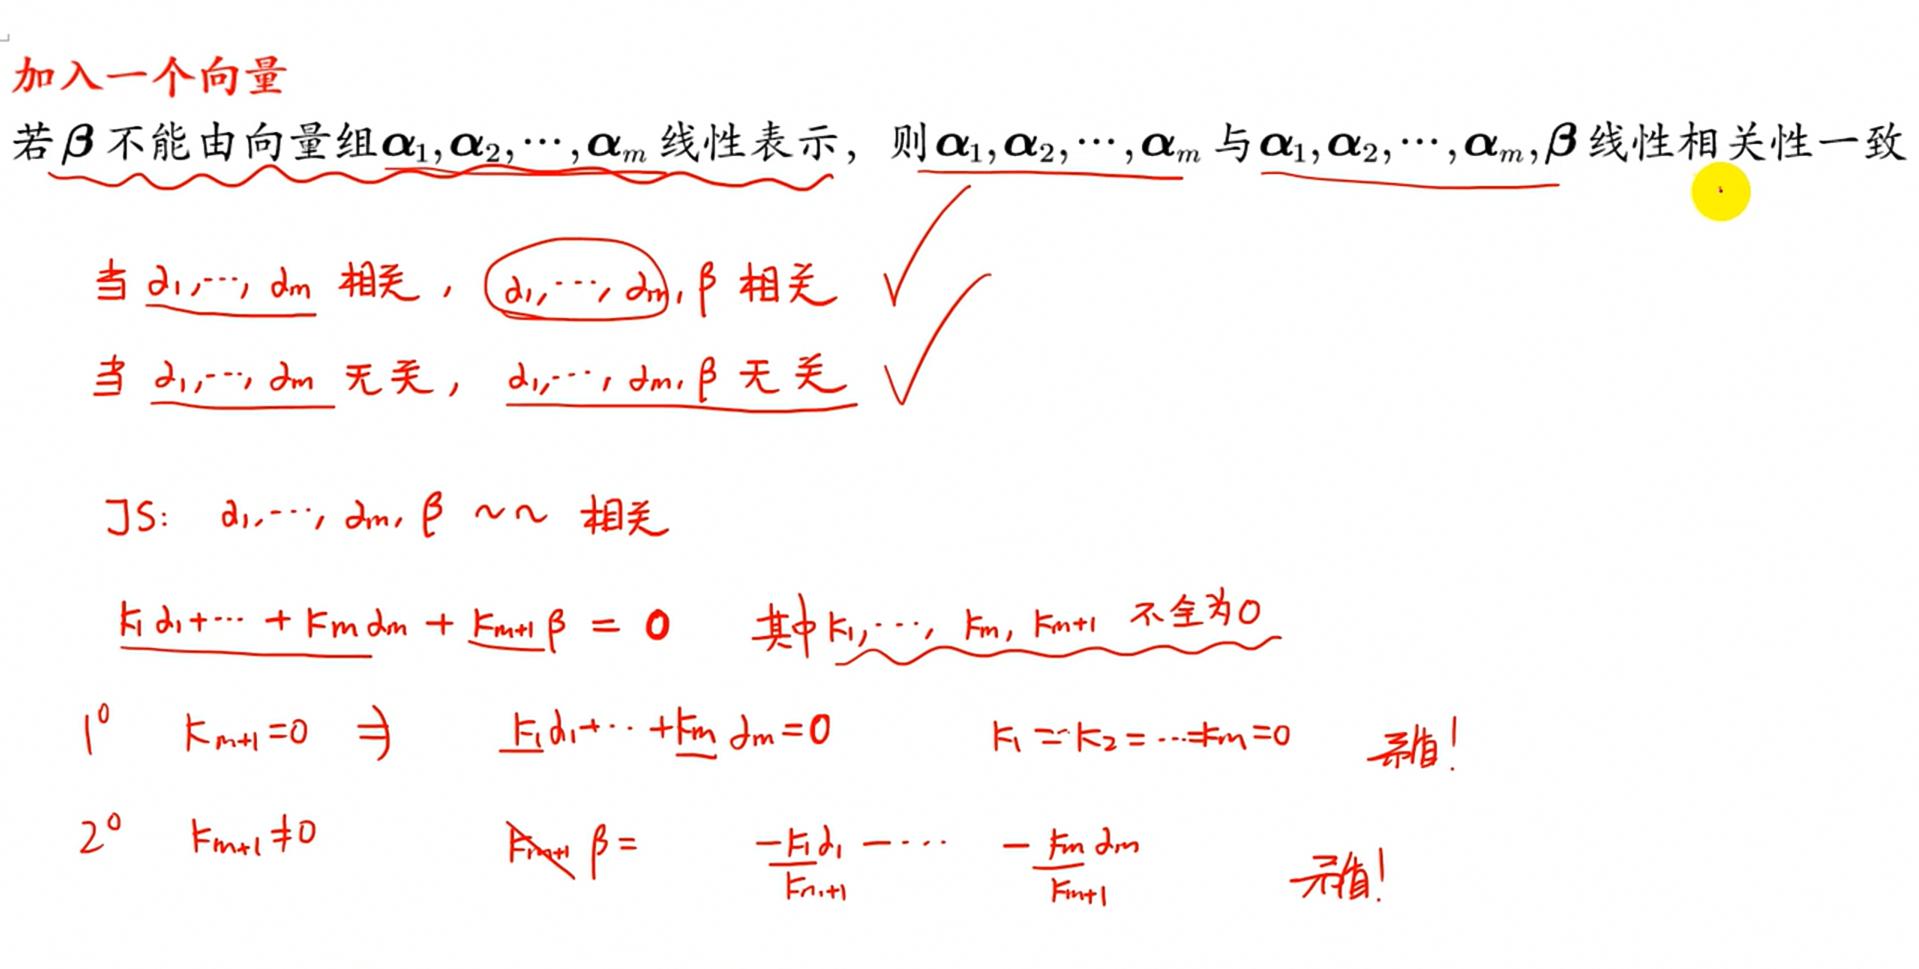 加入一个向量
若β不能由向量组α₁,α₂,⋯,αₘ线性表示，则α₁,α₂,⋯,αₘ与α₁,α₂,⋯,αₘ,β线性相关性一致
当 α₁,⋯,αₘ 相关，α₁,⋯,αₘ,β 相关 ✓
当 α₁,⋯,αₘ 无关，α₁,⋯,αₘ,β 无关 ✓
JS: α₁,⋯,αₘ,β ~~ 相关
k₁α₁+⋯+kₘαₘ+kₘ₊₁β=0 其中k₁,⋯,kₘ,kₘ₊₁ 不全为0
1⁰ kₘ₊₁=0 ⇒ k₁α₁+⋯+kₘαₘ=0 k₁=k₂=⋯=kₘ=0 矛盾!
2⁰ kₘ₊₁≠0 β= -k₁α₁/kₘ₊₁ -⋯ -kₘαₘ/kₘ₊₁ 矛盾!